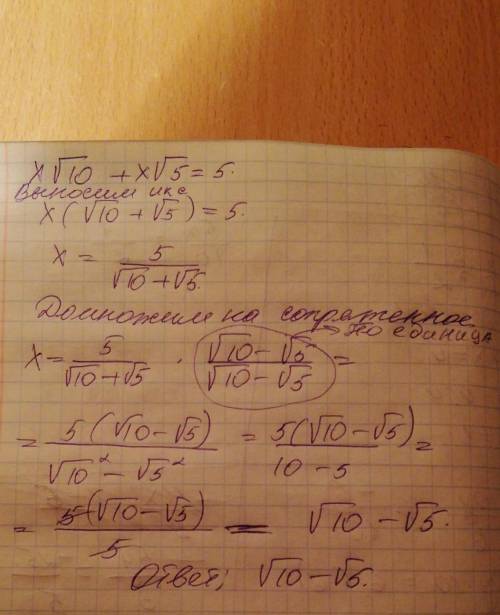 x√10 + x√5 = 5.
Выносим икс
x(√10 + √5) = 5.
x = 5/(√10 + √5).
Домножим на сопряженное.
→ это единица
x = 5/(√10 + √5) · (√10 - √5)/(√10 - √5) =
= 5(√10 - √5)/(√10² - √5²) = 5(√10 - √5)/(10 - 5) =
= 5(√10 - √5)/5 = √10 - √5.
Ответ; √10 - √5.